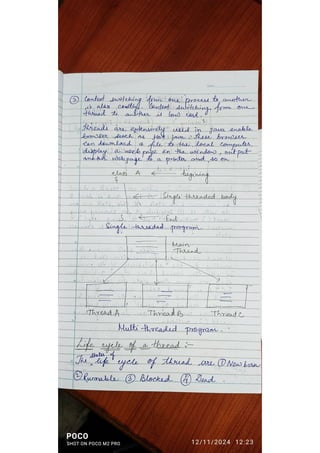 ③ Context switching form one process to another
is also costly. Context switching from one
thread to another is low cost.
threads are extensively used in java enable
browser such as hot java. these browser
can download a file to the local computer,
display a web page in the window, output
another webpage to a printer and so on.
class A ← begining
{
← Single threaded body
} ← End
Single threaded program
Main
Thread
Thread A Thread B Thread C
Multi threaded program.
Life cycle of a thread :-
The state of life cycle of thread are ① New born
② Runnable ③ Blocked ④ Dead.
POCO
SHOT ON POCO M2 PRO
12/11/2024 12:23